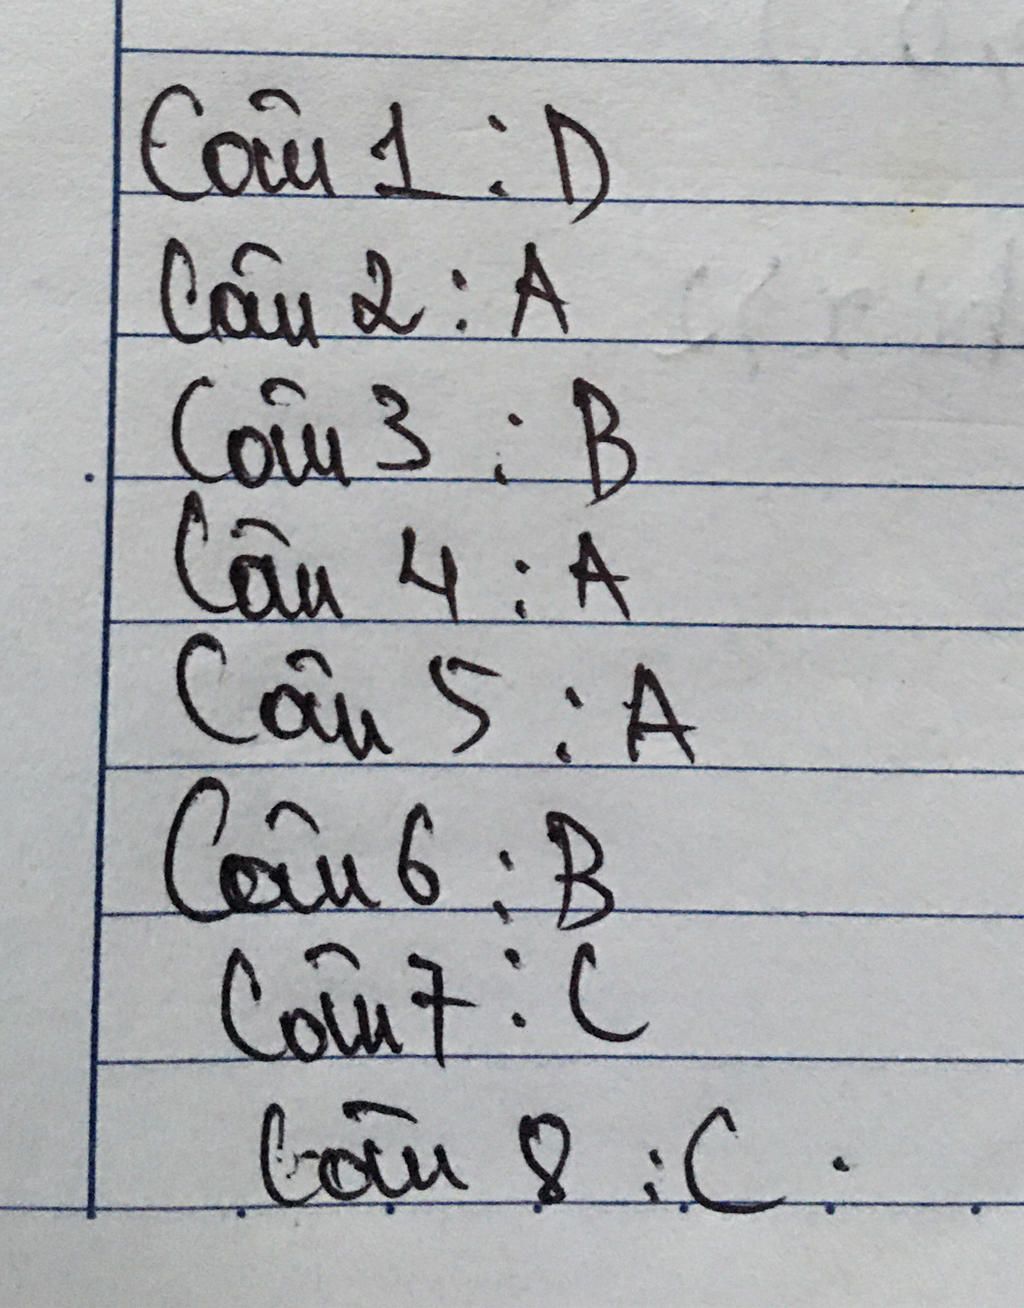 Câu 1 : D
Câu 2 : A
Câu 3 : B
Câu 4 : A
Câu 5 : A
Câu 6 : B
Câu 7 : C
Câu 8 : C .